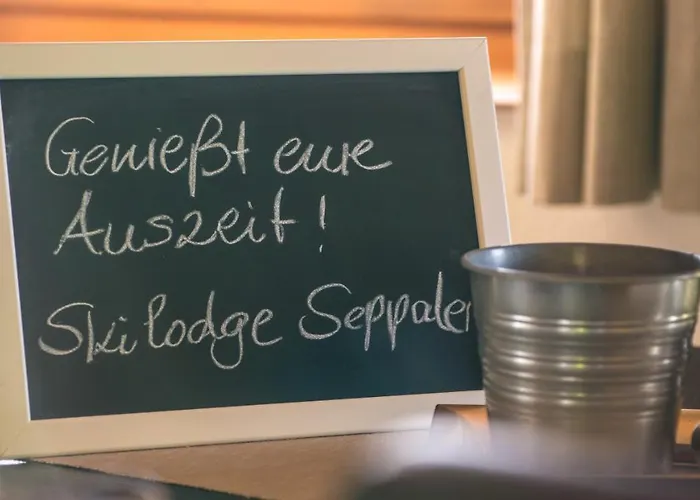 Genießt eure
Auszeit!
Skilodge Seppaler